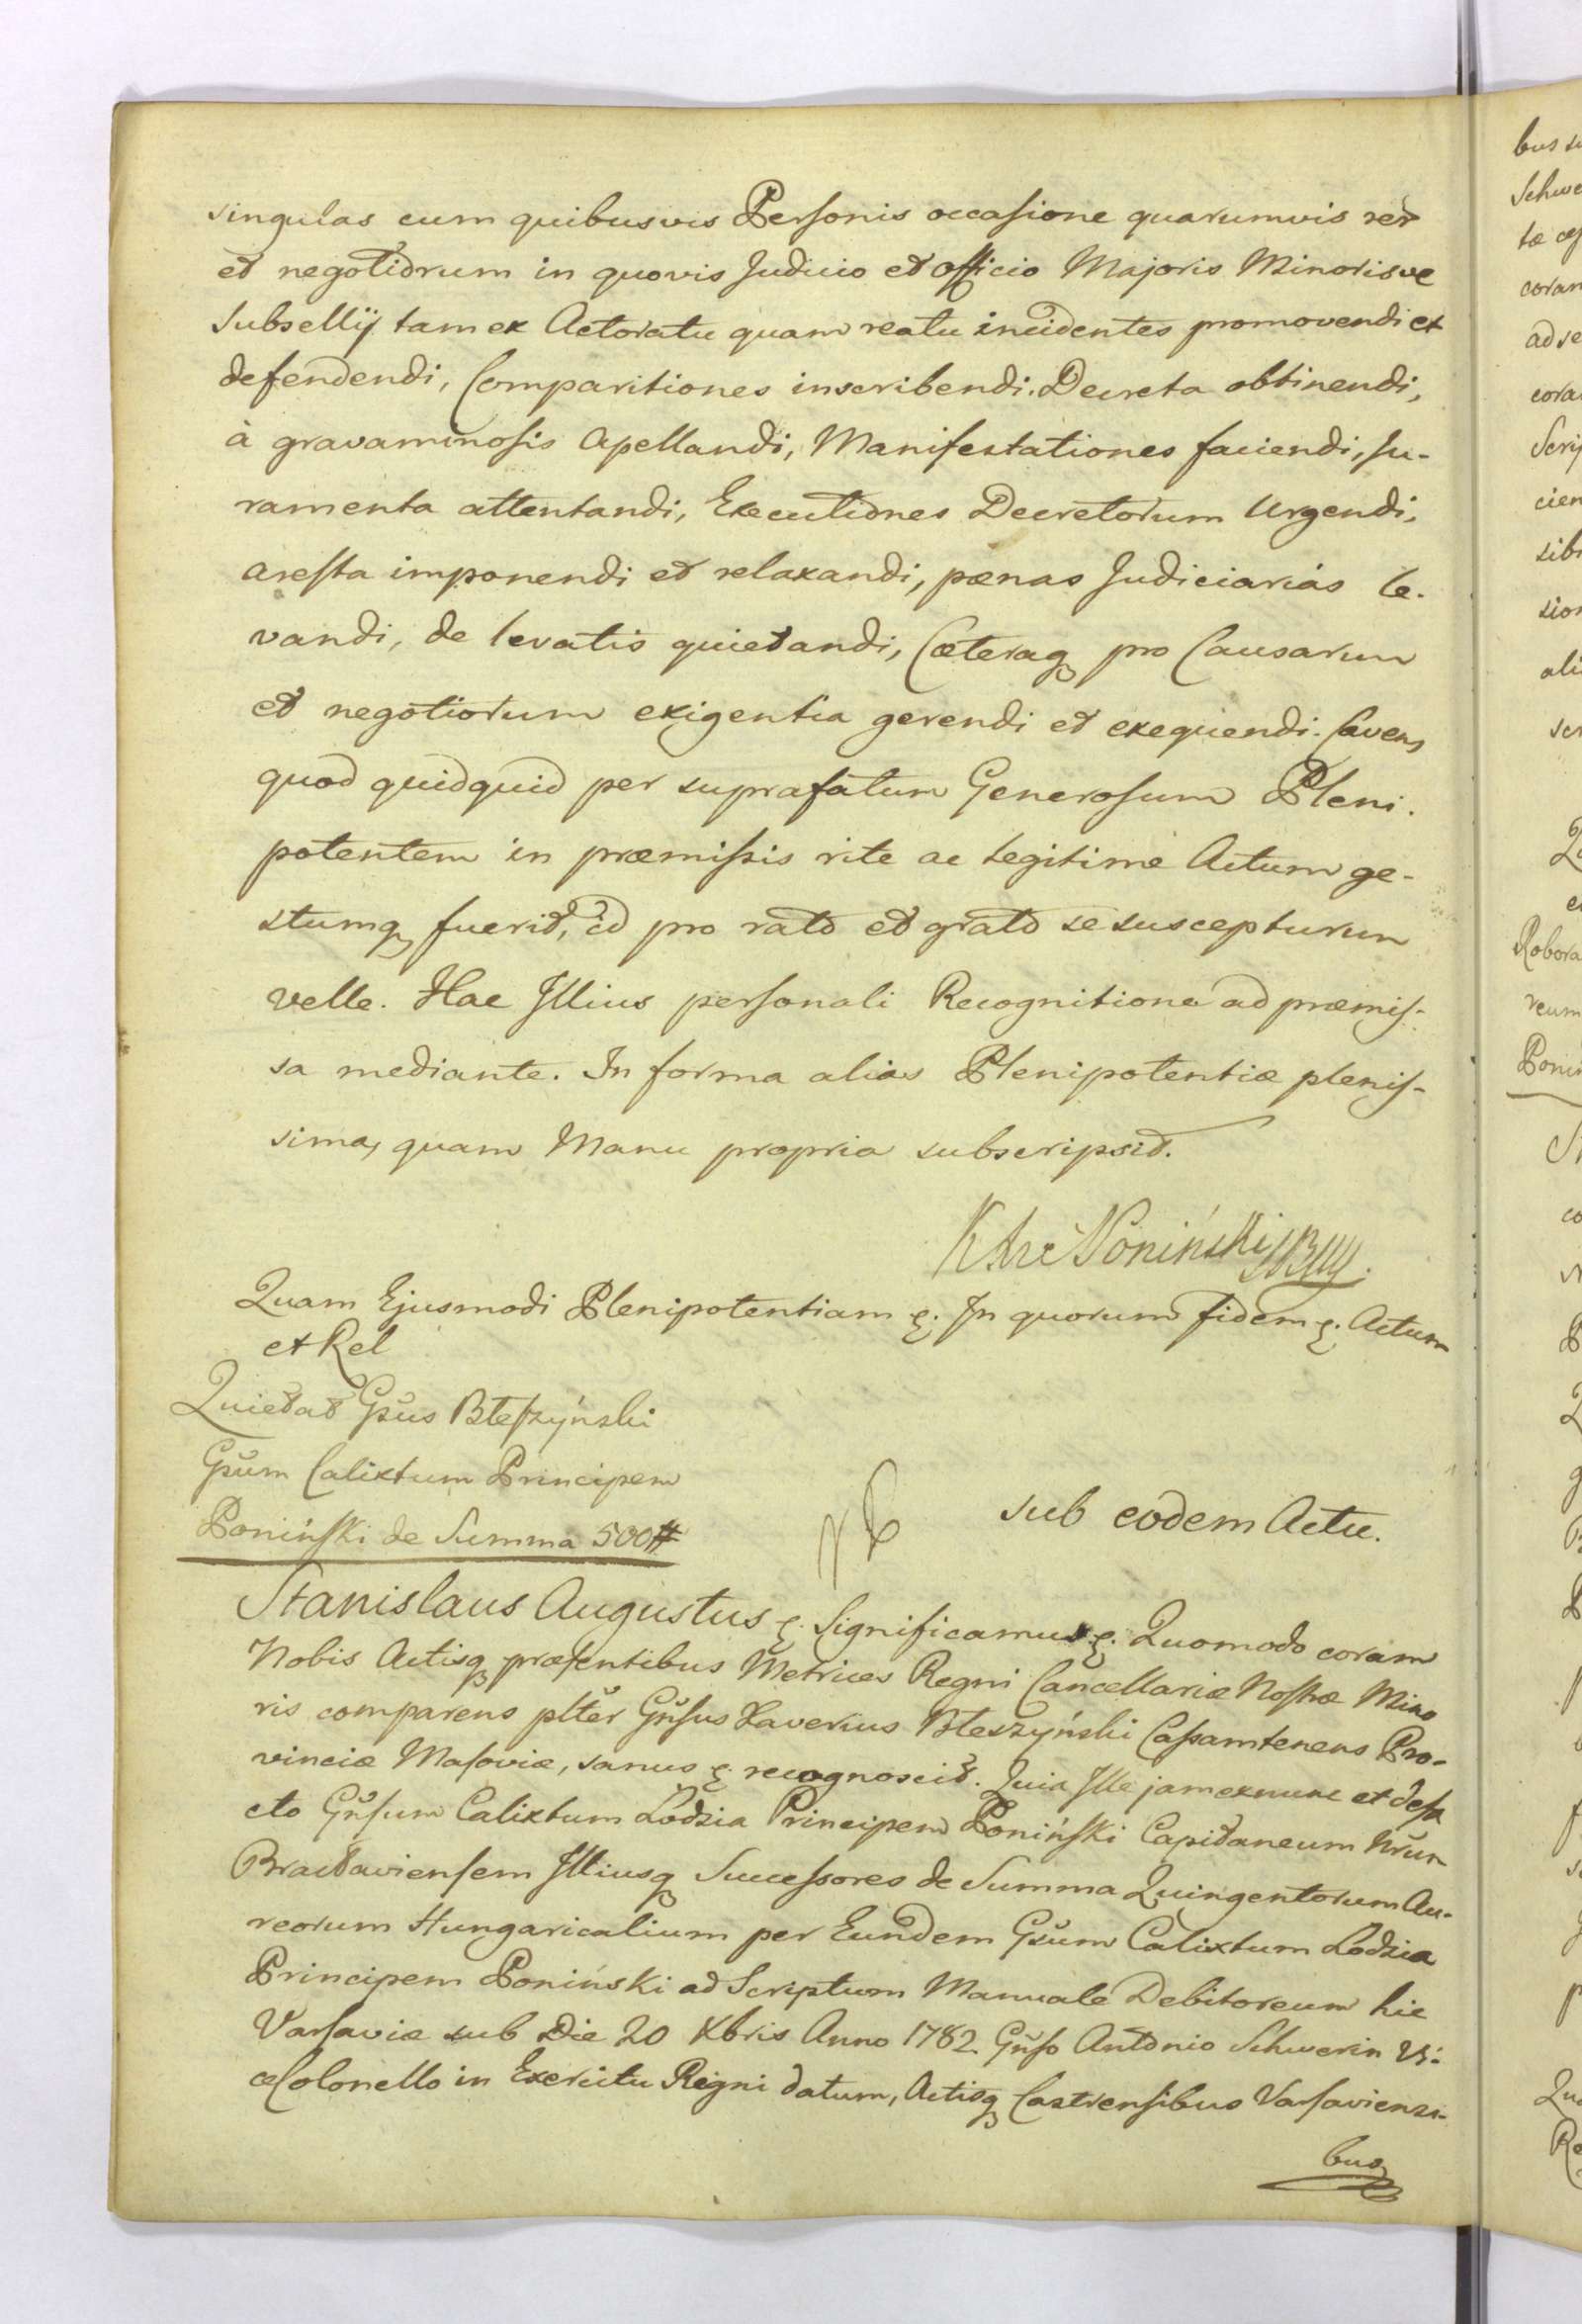 singulas cum quibusvis Personis occasione quarumvis rer
et negotiorum in quovis Judicio et officio Majoris Minorisve
Subsellij tam ex Actoratu quam reatu incidentes promovendi et
defendendi, Comparitiones inscribendi. Decreta obtinendi,
à gravaminosis Apellandi, Manifestationes faciendi, Ju-
ramenta attentandi, Executiones Decretorum Urgendi,
aresta imponendi et relaxandi, pœnas Judiciarias le-
vandi, de levatis quietandi, Cœteraq pro Causarum
et negotiorum exigentia gerendi et exequendi. Cavens
quod quidquid per suprafatum Generosum Pleni-
potentem in præmissis rite ac legitime Actum ge-
stumq fuerit, id pro rato et grato se suscepturum
velle. Hac Illius personali Recognitione ad præmis-
sa mediante. In forma alias Plenipotentiæ plenis-
sima, quam Manu propria subscripsit.
Poniński
Quam Ejusmodi Plenipotentiam &. In quorum fidem &. Actum
et Rel
Quietat Gsus Błeszyński
Gsum Calixtum Principem
Poniński de Summa 500#
sub eodem Actu.
Stanislaus Augustus &. Significamus &. Quomodo coram
Nobis Actisq præsentibus Metrices Regni Cancellariæ Nostræ Mino
ris comparens plter Gnsus Xaverius Błeszyński Camtenens Pro-
vinciæ Masoviæ, sanus &. recognoscit. Quia Ille jam exnunc et de fa
cto Gnsum Calixtum Lodzia Principem Poniński Capitaneum Nrum
Bractaviensem Illiusq Successores de Summa Quingentorum Au-
reorum Hungaricalium per Eundem Gsum Calixtum Lodzia
Principem Poniński ad Scriptum Manuale Debitoreum hic
Varsaviæ sub Die 20 Xbris Anno 1782. Gnso Antonio Schwerin Vi-
ce Colonello in Exercitu Regni datum, Actisq Castrensibus Varsaviensi-
bus